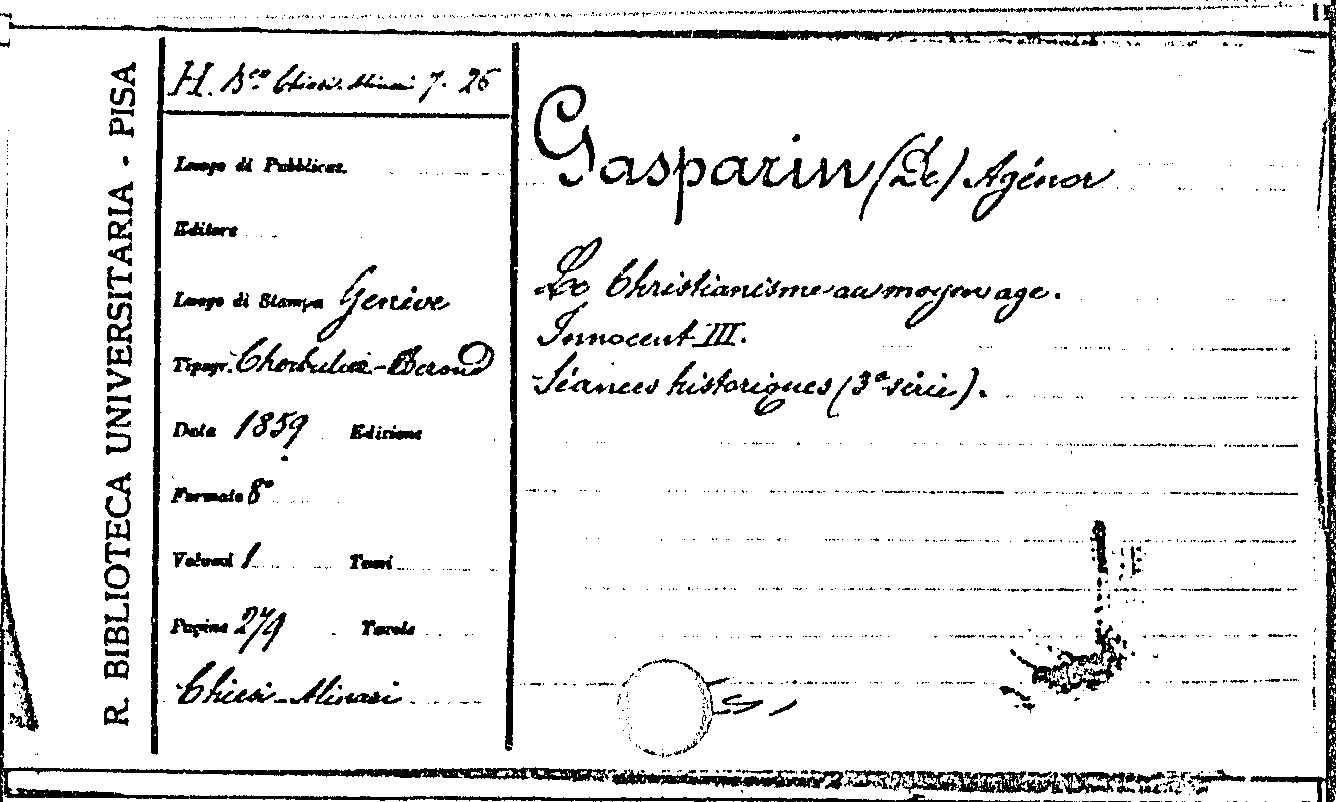 R. BIBLIOTECA UNIVERSITARIA - PISA
H. Bco Chiesi-Minasi 7. 26
Luogo di Pubblicaz.
Editore
Luogo di Stampa Genève
Tipogr. Cherbuliez-Derond
Data 1859 Edizione
Formato 8°
Volumi 1 Tomi
Pagine 279 Tavole
Chiesi-Minasi
Gasparin (De) Agénor
Le Christianisme au moyen age.
Innocent III.
Séances historiques (3e série).